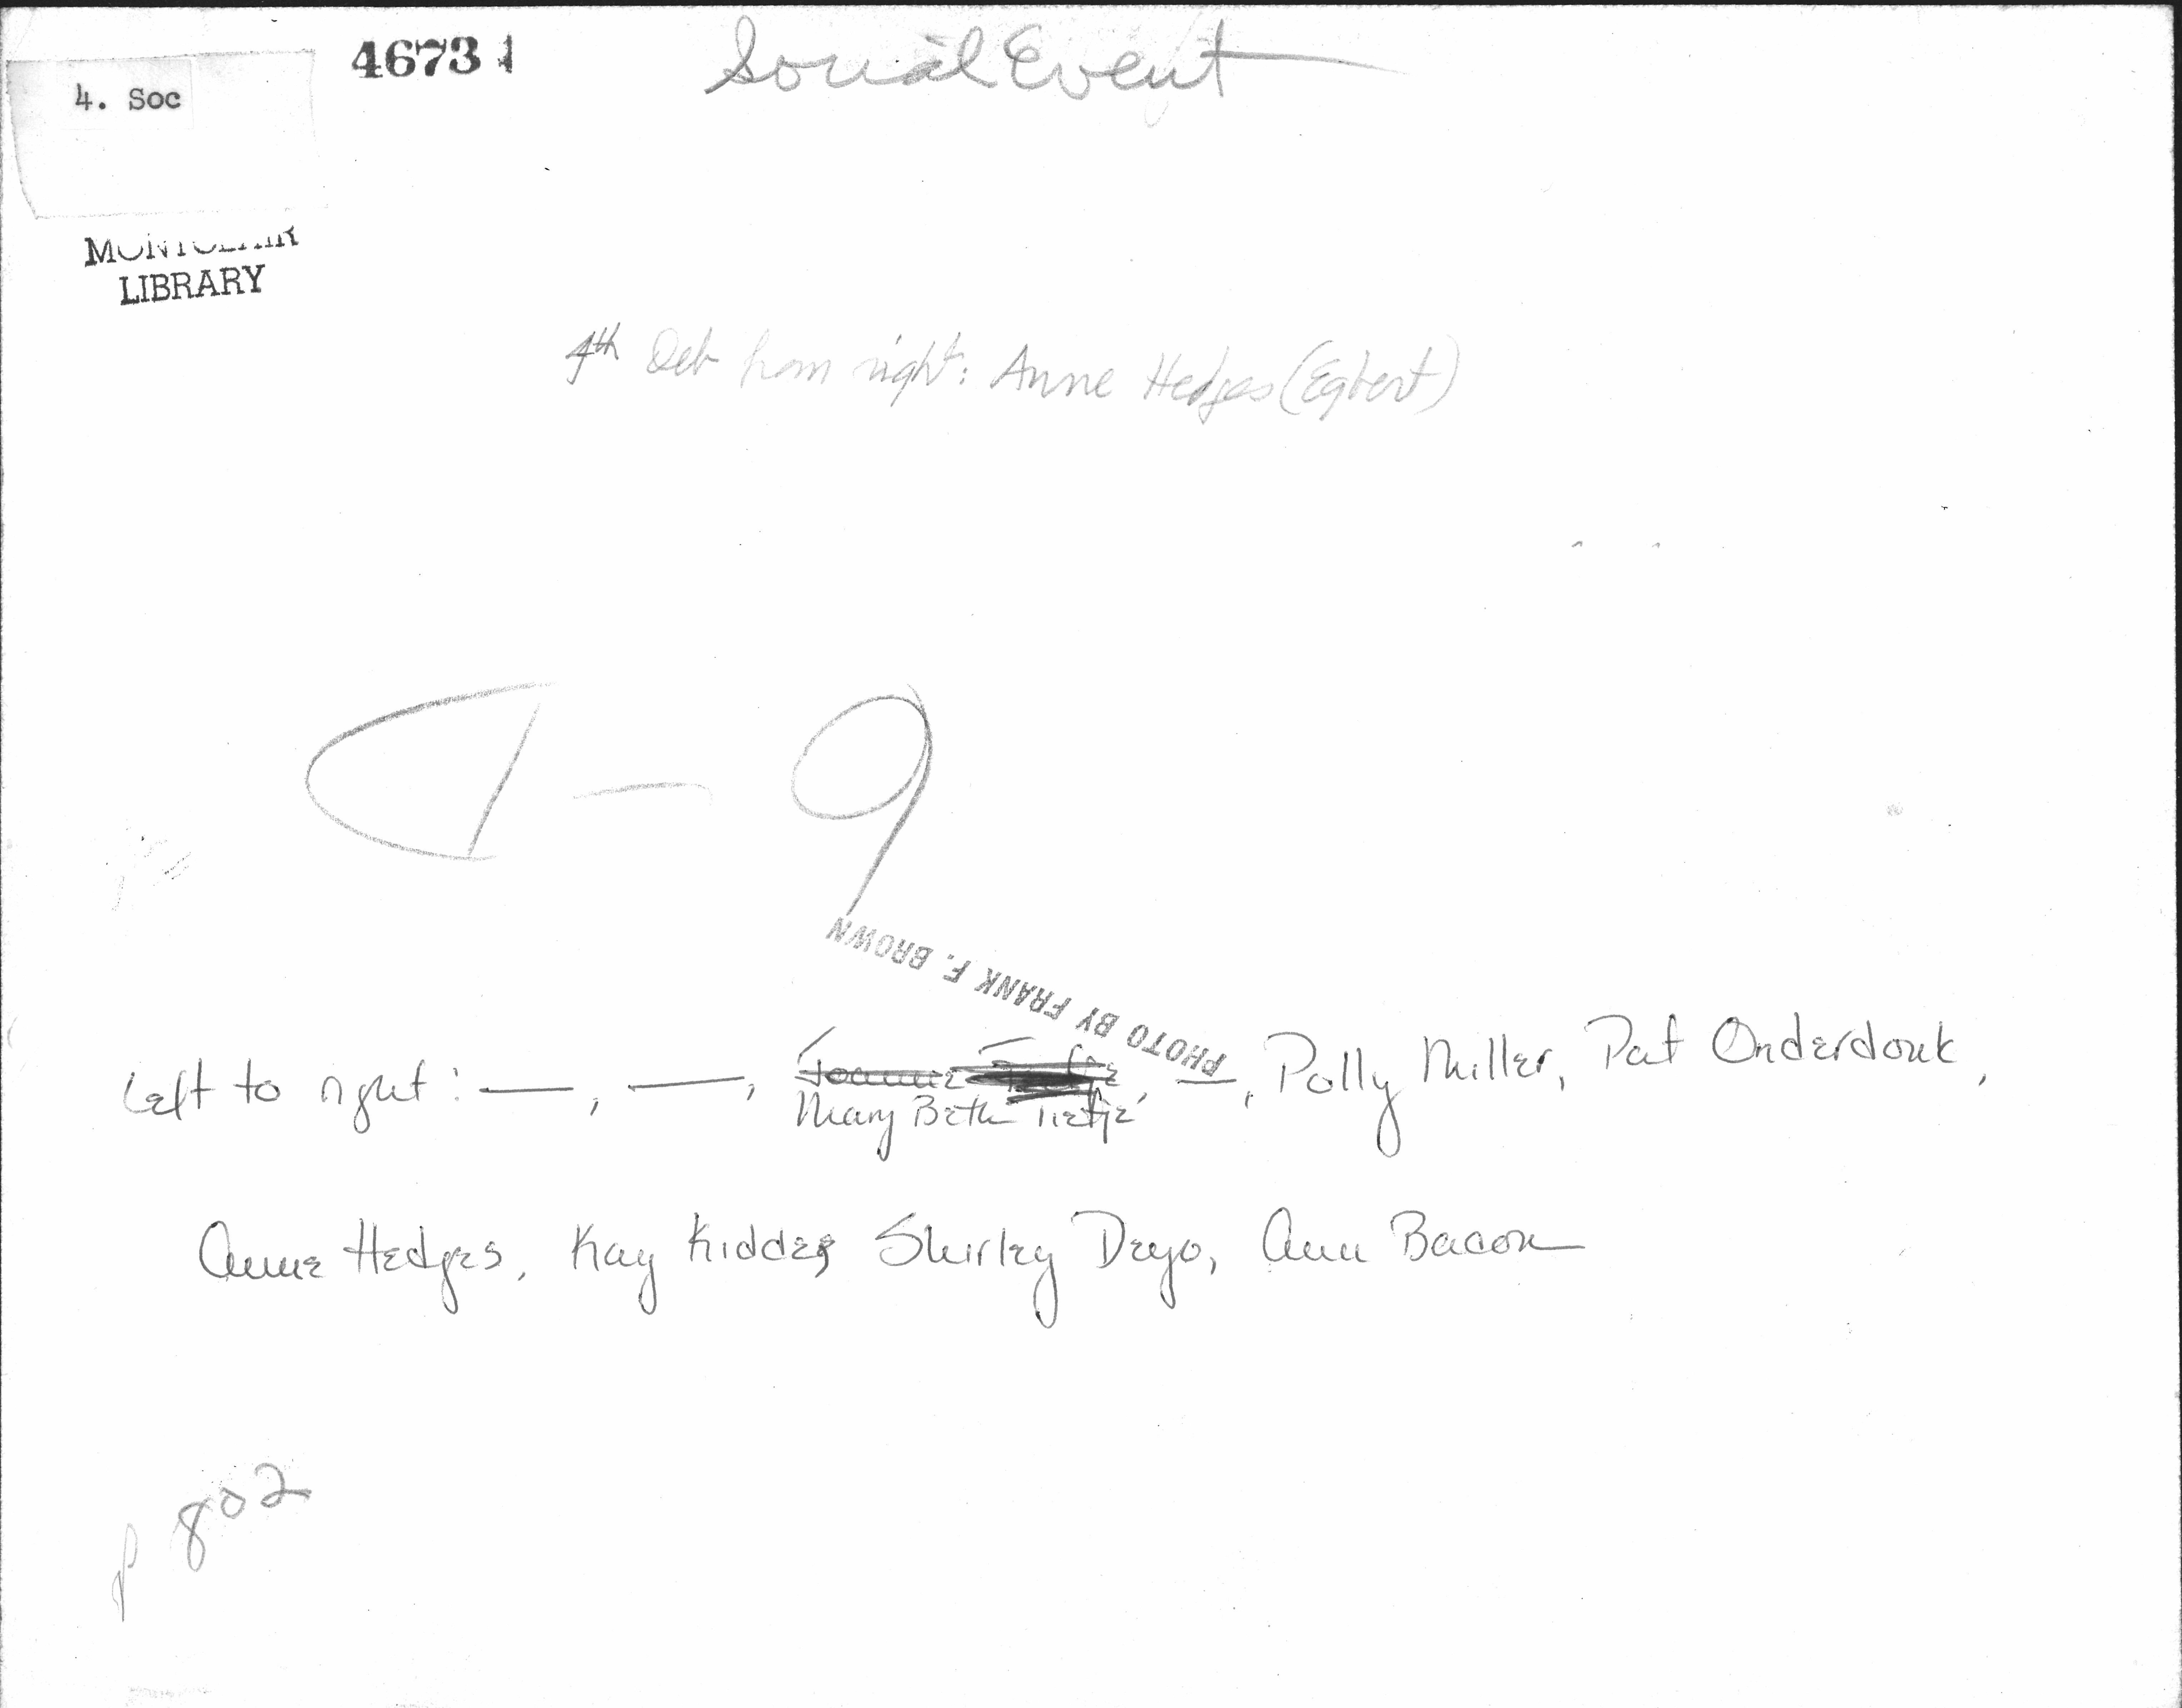 46731
Social Event
4. Soc
MONTCLAIR
LIBRARY
4th Deb from right: Anne Hedges (Egbert)
9
PHOTO BY FRANK F. BROWN
Left to right: —, —, Joannie
Mary Beth Tietje, —, Polly Miller, Pat Onderdonk,
Anne Hedges, Kay Kidde, Shirley Deyo, Ann Bacon
p 802